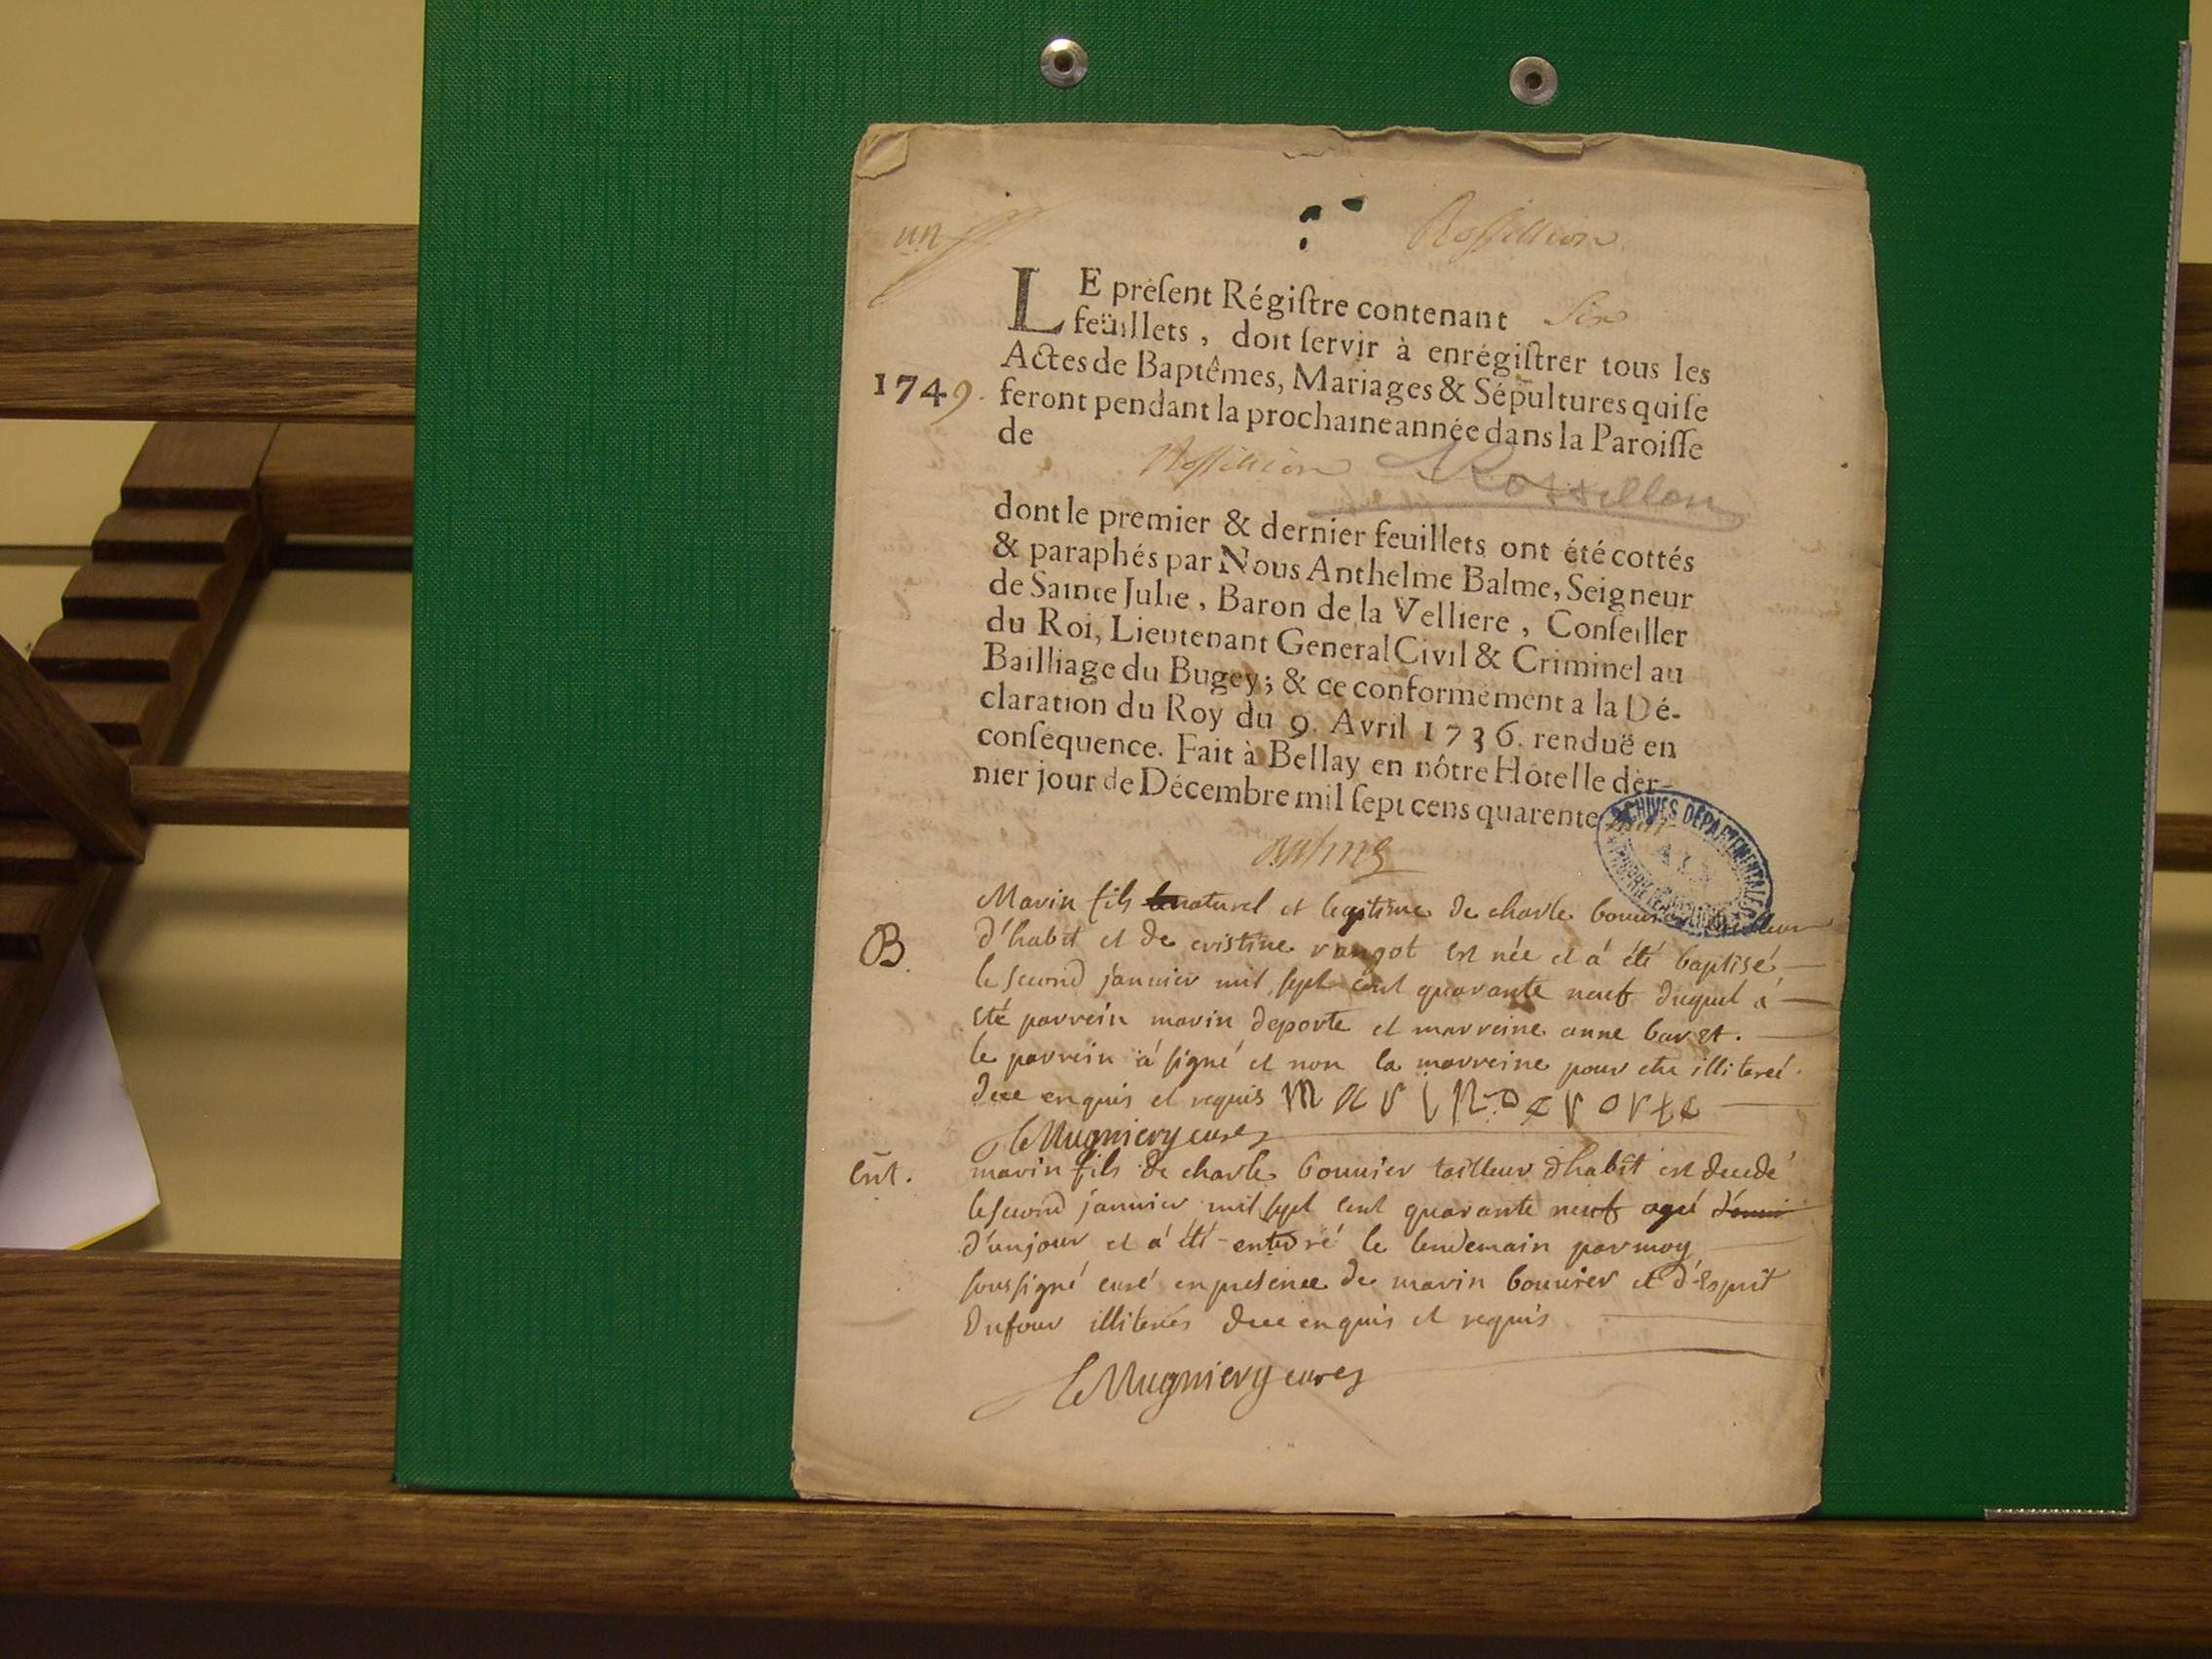 un
Rossillion
LE présent Régistre contenant Six
feüillets, doit servir à enrégistrer tous les
Actes de Baptêmes, Mariages & Sépultures qui se
1749. feront pendant la prochaine année dans la Paroisse
de
Rossillion Rossillon
dont le premier & dernier feuillets ont été cottés
& paraphés par Nous Anthelme Balme, Seigneur
de Sainte Julie, Baron de la Velliere, Conseiller
du Roi, Lieutenant General Civil & Criminel au
Bailliage du Bugey; & ce conformément a la Dé-
claration du Roy du 9. Avril 1736. renduë en
conséquence. Fait à Bellay en nôtre Hôtel le der-
nier jour de Décembre mil sept cens quarente
Balme
ARCHIVES DEPARTEMENTALES
AIN
Marin fils naturel et legitime de charle bouvier tailleur
B. d'habit et de cristine rangot est née et á été baptisé
le second janvier mil sept cent quarante neuf duquel á
été parrein marin deporte et marreine anne baret.
le parrein á signé et non la marreine pour etre illiterée
de ce enquis et requis MARIN DEPORTE
C Mugniery curé
ent. marin fils de charle bouvier tailleur d'habit est decedé
le second janvier mil sept cent quarante neuf agé
d'un jour et á été enterré le lendemain par moy
soussigné curé en presence de marin bouvier et d'Esprit
Dufour illiterés de ce enquis et requis
C Mugniery curé